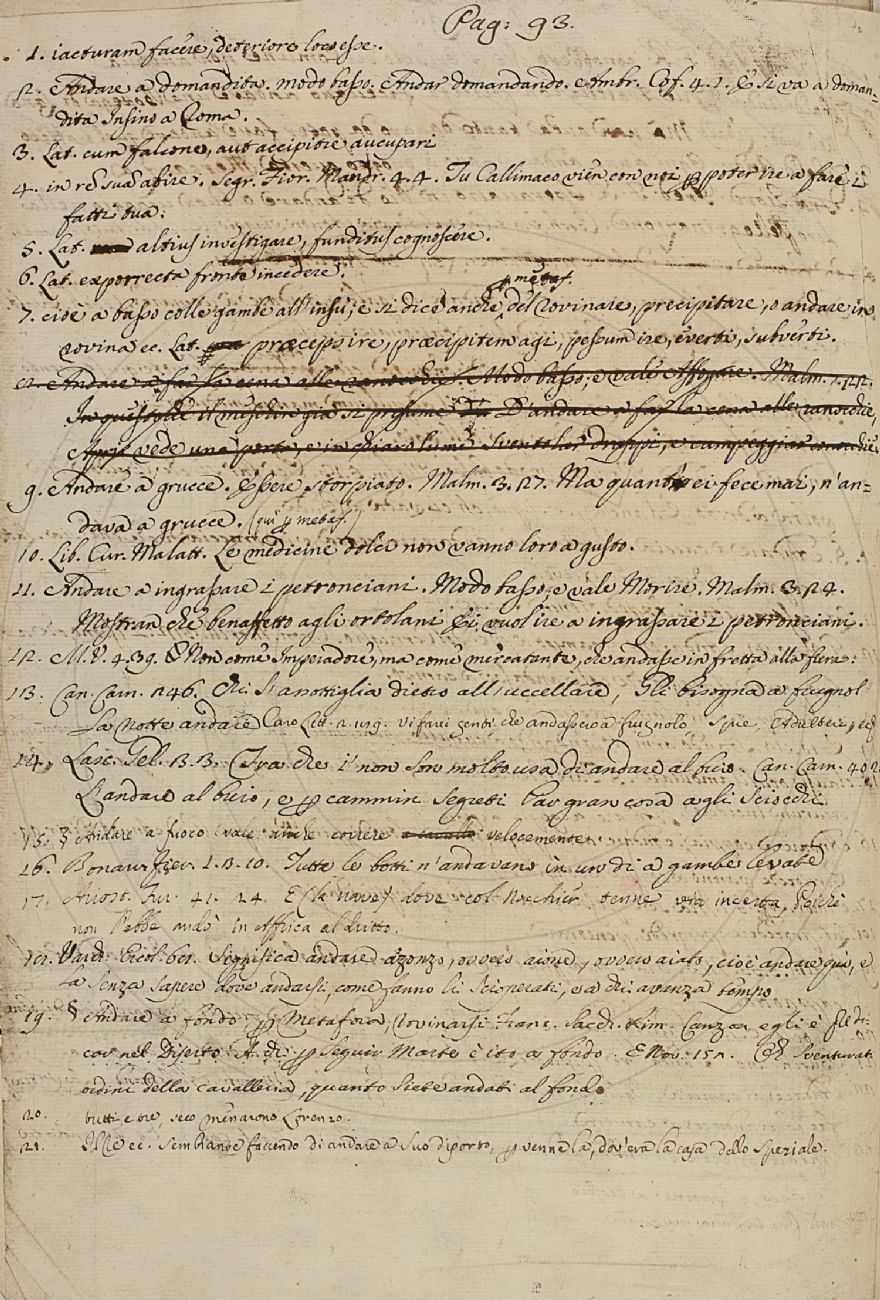 Pag: 93.
1. iacturam facere, deteriore loco esse.
2. Andare a domandita. modo basso. Andar domandando. Ambr. Cof. 4. 1. E si va a doman=
dita Insino a Roma.
3. Lat. cum falcone, aut accipitre aucupari
4. in rem suam abire. Segr. Fior. Mandr. 4. 4. Tu Callimaco vien con noi p poter ire a fare i
fatti tua:
5. Lat. altius investigare, funditus cognoscere.
6. Lat. exporrecta fronte incedere.
p metaf.
7. cioè a basso colle gambe all'insù, e si dice anche del Rovinare, precipitare, o andare in
rovina ec. Lat. præceps ire, præcipitem agi, pessum ire, everti, subverti.
Andare a far la cena alle ranocchie. Modo basso, e vale Affogare. Malm.
il misedire già si presume D'andare a far la cena alle ranocchie,
vede una porta, e in chiaro lume Sventolar drappi, e campeggiar conocchie.
9. Andare a grucce. Essere storpiato. Malm. 3. 17. Ma quanti ei fece mai, n'an=
dava a grucce. (qui p metaf.)
10. Lib. Cur. Malatt. Le medicine dolci non vanno loro a gusto.
11. Andare a ingrassare i petronciani. Modo basso, e vale Morire. Malm. 3. 24.
Mostran che benaffetto agli ortolani Ei vuol ire a ingrassare i petronciani.
12. M. V. 4. 39. Non come Imperadore, ma come mercatante, che andasse in fretta alla fiera:
13. Can. Carn. 246. Chi s'anottiglia dietro all'uccellare, Gli bisogna a frugnol
La notte andare Caro Lett. 2. 119. vi farei genti, che andassero a frugnolo, Spie, Adulteri,
14. Lasc. Gel. 3. 13. Tra che i' non son molto usa di andare al buio. Can. Carn. 402
L'andare al buio, e p cammin segreti Par gran cosa agli sciocchi.
15. § Andare a fuoco vale anche correre a cavallo velocemente.
16. Bonar. Fier. 1. 3. 10. Tutte le botti n'andavano in un dì a gambe levate
17. Arios. Fur. 41. 24. E (la nave) dove col nocchier tenne via incerta, Poichè
non l'ebbe andò in Affrica al dritto.
18. Varch. Ercol. 61. Significa andare azonzo, ovvero aione, ovvero aiato, cioè andare qua, e
la senza sapere dove andarsi, come fanno li scioperati, e a chi avanza tempo
19. § Andare a fondo, p Metafora, Rovinarsi Franc. Sacch. Rim. Canzon egli è
car nel Diserto. A chi p seguir Marte è ito a fondo. E Nov. 152. Oh sventurati
ordini della cavalleria, quanto siete andati al fondo
20. tutti e tre, seco menarono Lorenzo.
21. Elle ec. sembiante faccendo di andare a suo diporto, p venne là, dov'era la casa dello speziale.